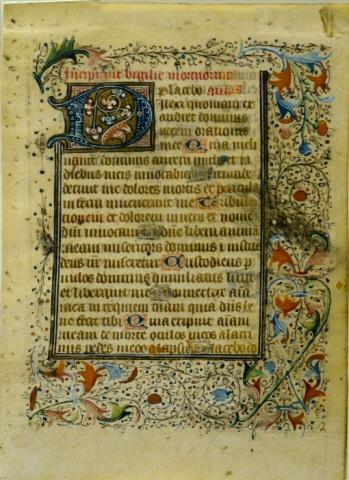 Incipiunt vigilie mortuorum
Placebo
Dilexi quoniam ex
audiet dominus
vocem orationis
mee Quia incli
nauit dominus aurem michi et in
diebus meis inuocabo
derunt me dolores mortis et pericula
inferni inuenerunt me Tribula
tionem et dolorem inueni et nomen
dni inuocaui dne libera animam
meam misericors dominus et iustus
deus nr miseretur Custodiens p
uulos dominus humiliatus
et liberauit me Conuertere aia
mea in requiem tuam quia dns be
nefecit tibi Quia eripuit aiam
meam de morte oculos meos a lacri
mis pedes meos a lapsu Placebo do